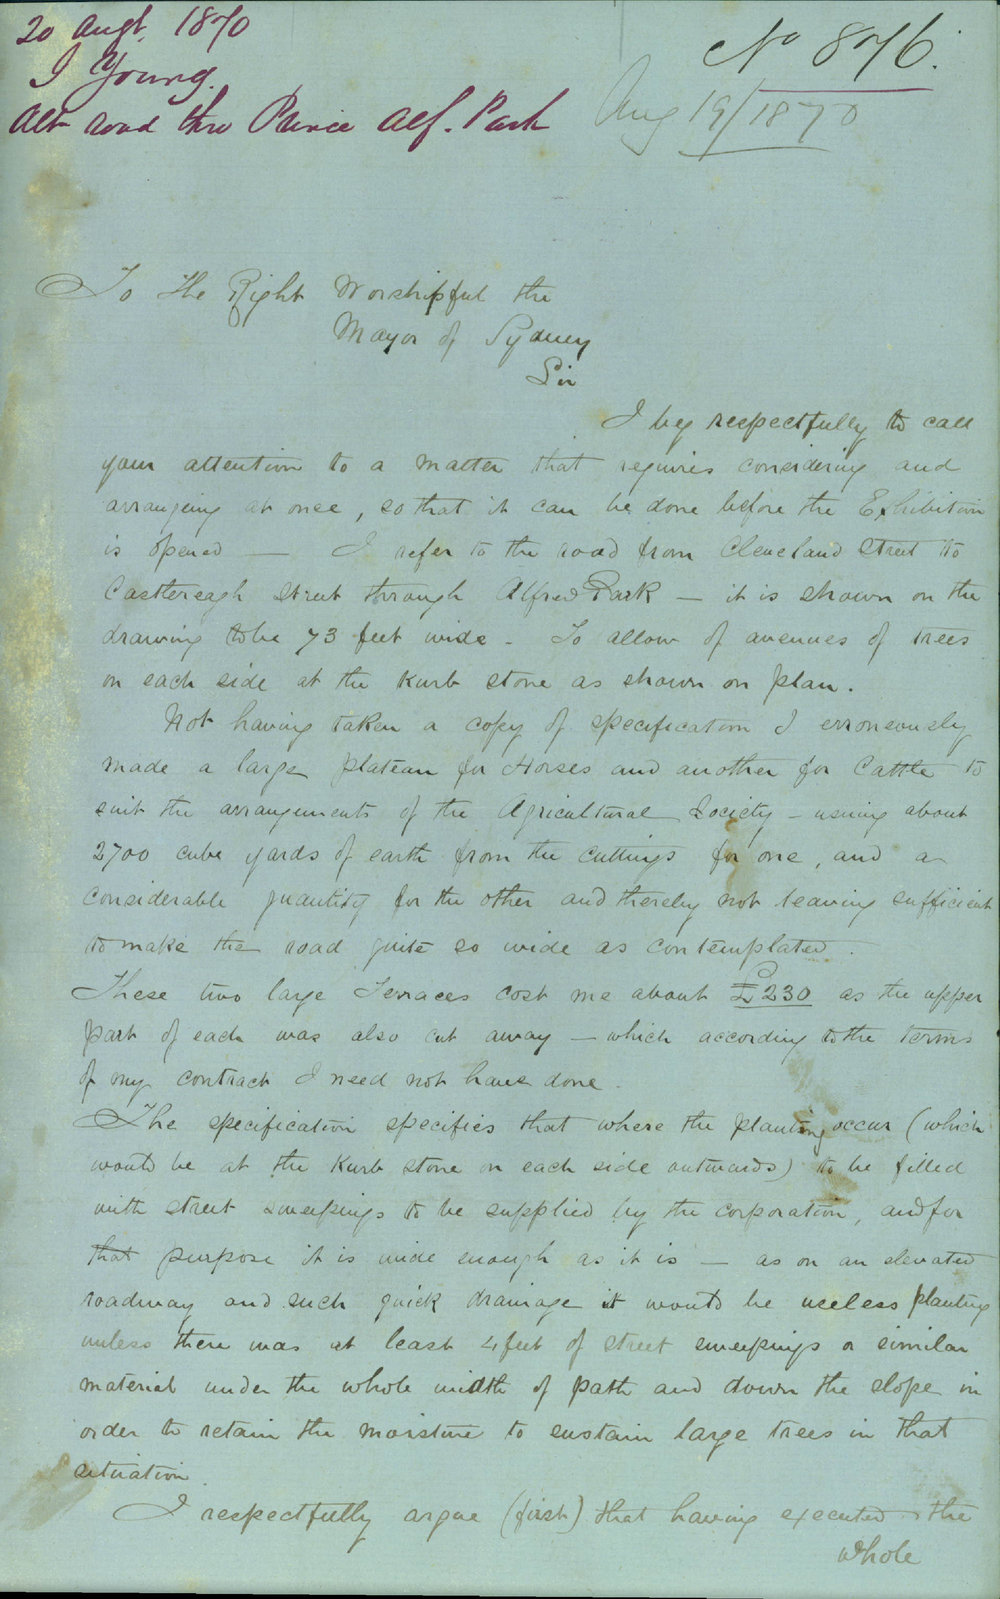 20 Augt. 1870
J Young.
Alt road thro Prince Alf. Park
No 876.
Aug 19/1870
To The Right Worshipful the
Mayor of Sydney
Sir
I beg respectfully to call
your attention to a matter that requires considering and
arranging at once, so that it can be done before the Exhibition
is opened — I refer to the road from Cleveland Street to
Castlereagh Street through Alfred Park — it is shown on the
drawing to be 73 feet wide - To allow of avenues of trees
on each side at the Kurb stone as shown on plan.
Not having taken a copy of specification I erroneously
made a large plateau for Horses and another for Cattle to
suit the arrangements of the Agricultural Society - using about
2700 cube yards of earth from the cuttings for one, and a
considerable quantity for the other and thereby not leaving sufficient
to make the road quite so wide as contemplated.
These two large Terraces cost me about £230 as the upper
part of each was also cut away — which according to the terms
of my contract I need not have done.
The specification specifies that where the planting occur (which
would be at the Kurb stone on each side outwards) to be filled
with street sweepings to be supplied by the corporation, and for
that purpose it is wide enough as it is — as on an elevated
roadway and such quick drainage it would be useless planting
unless there was at least 4 feet of street sweepings or similar
material under the whole width of path and down the slope in
order to retain the moisture to sustain large trees in that
situation.
I respectfully argue (first) that having executed the
whole